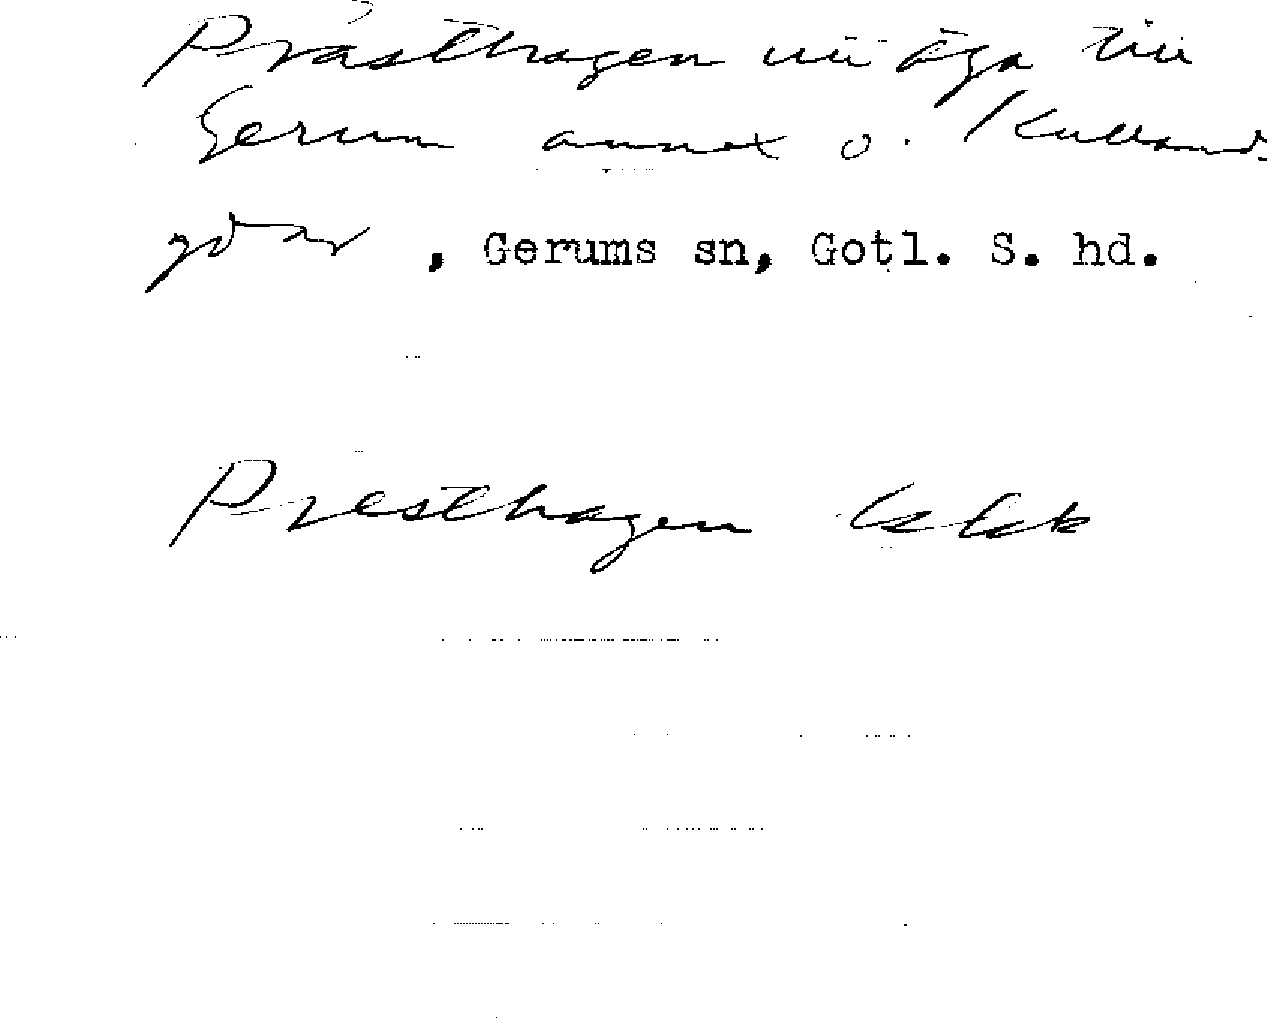 Prästhagen nu äga till
Gerum annex o. Kulland.
gdar, Gerums sn, Gotl. S. hd.
Presthagen